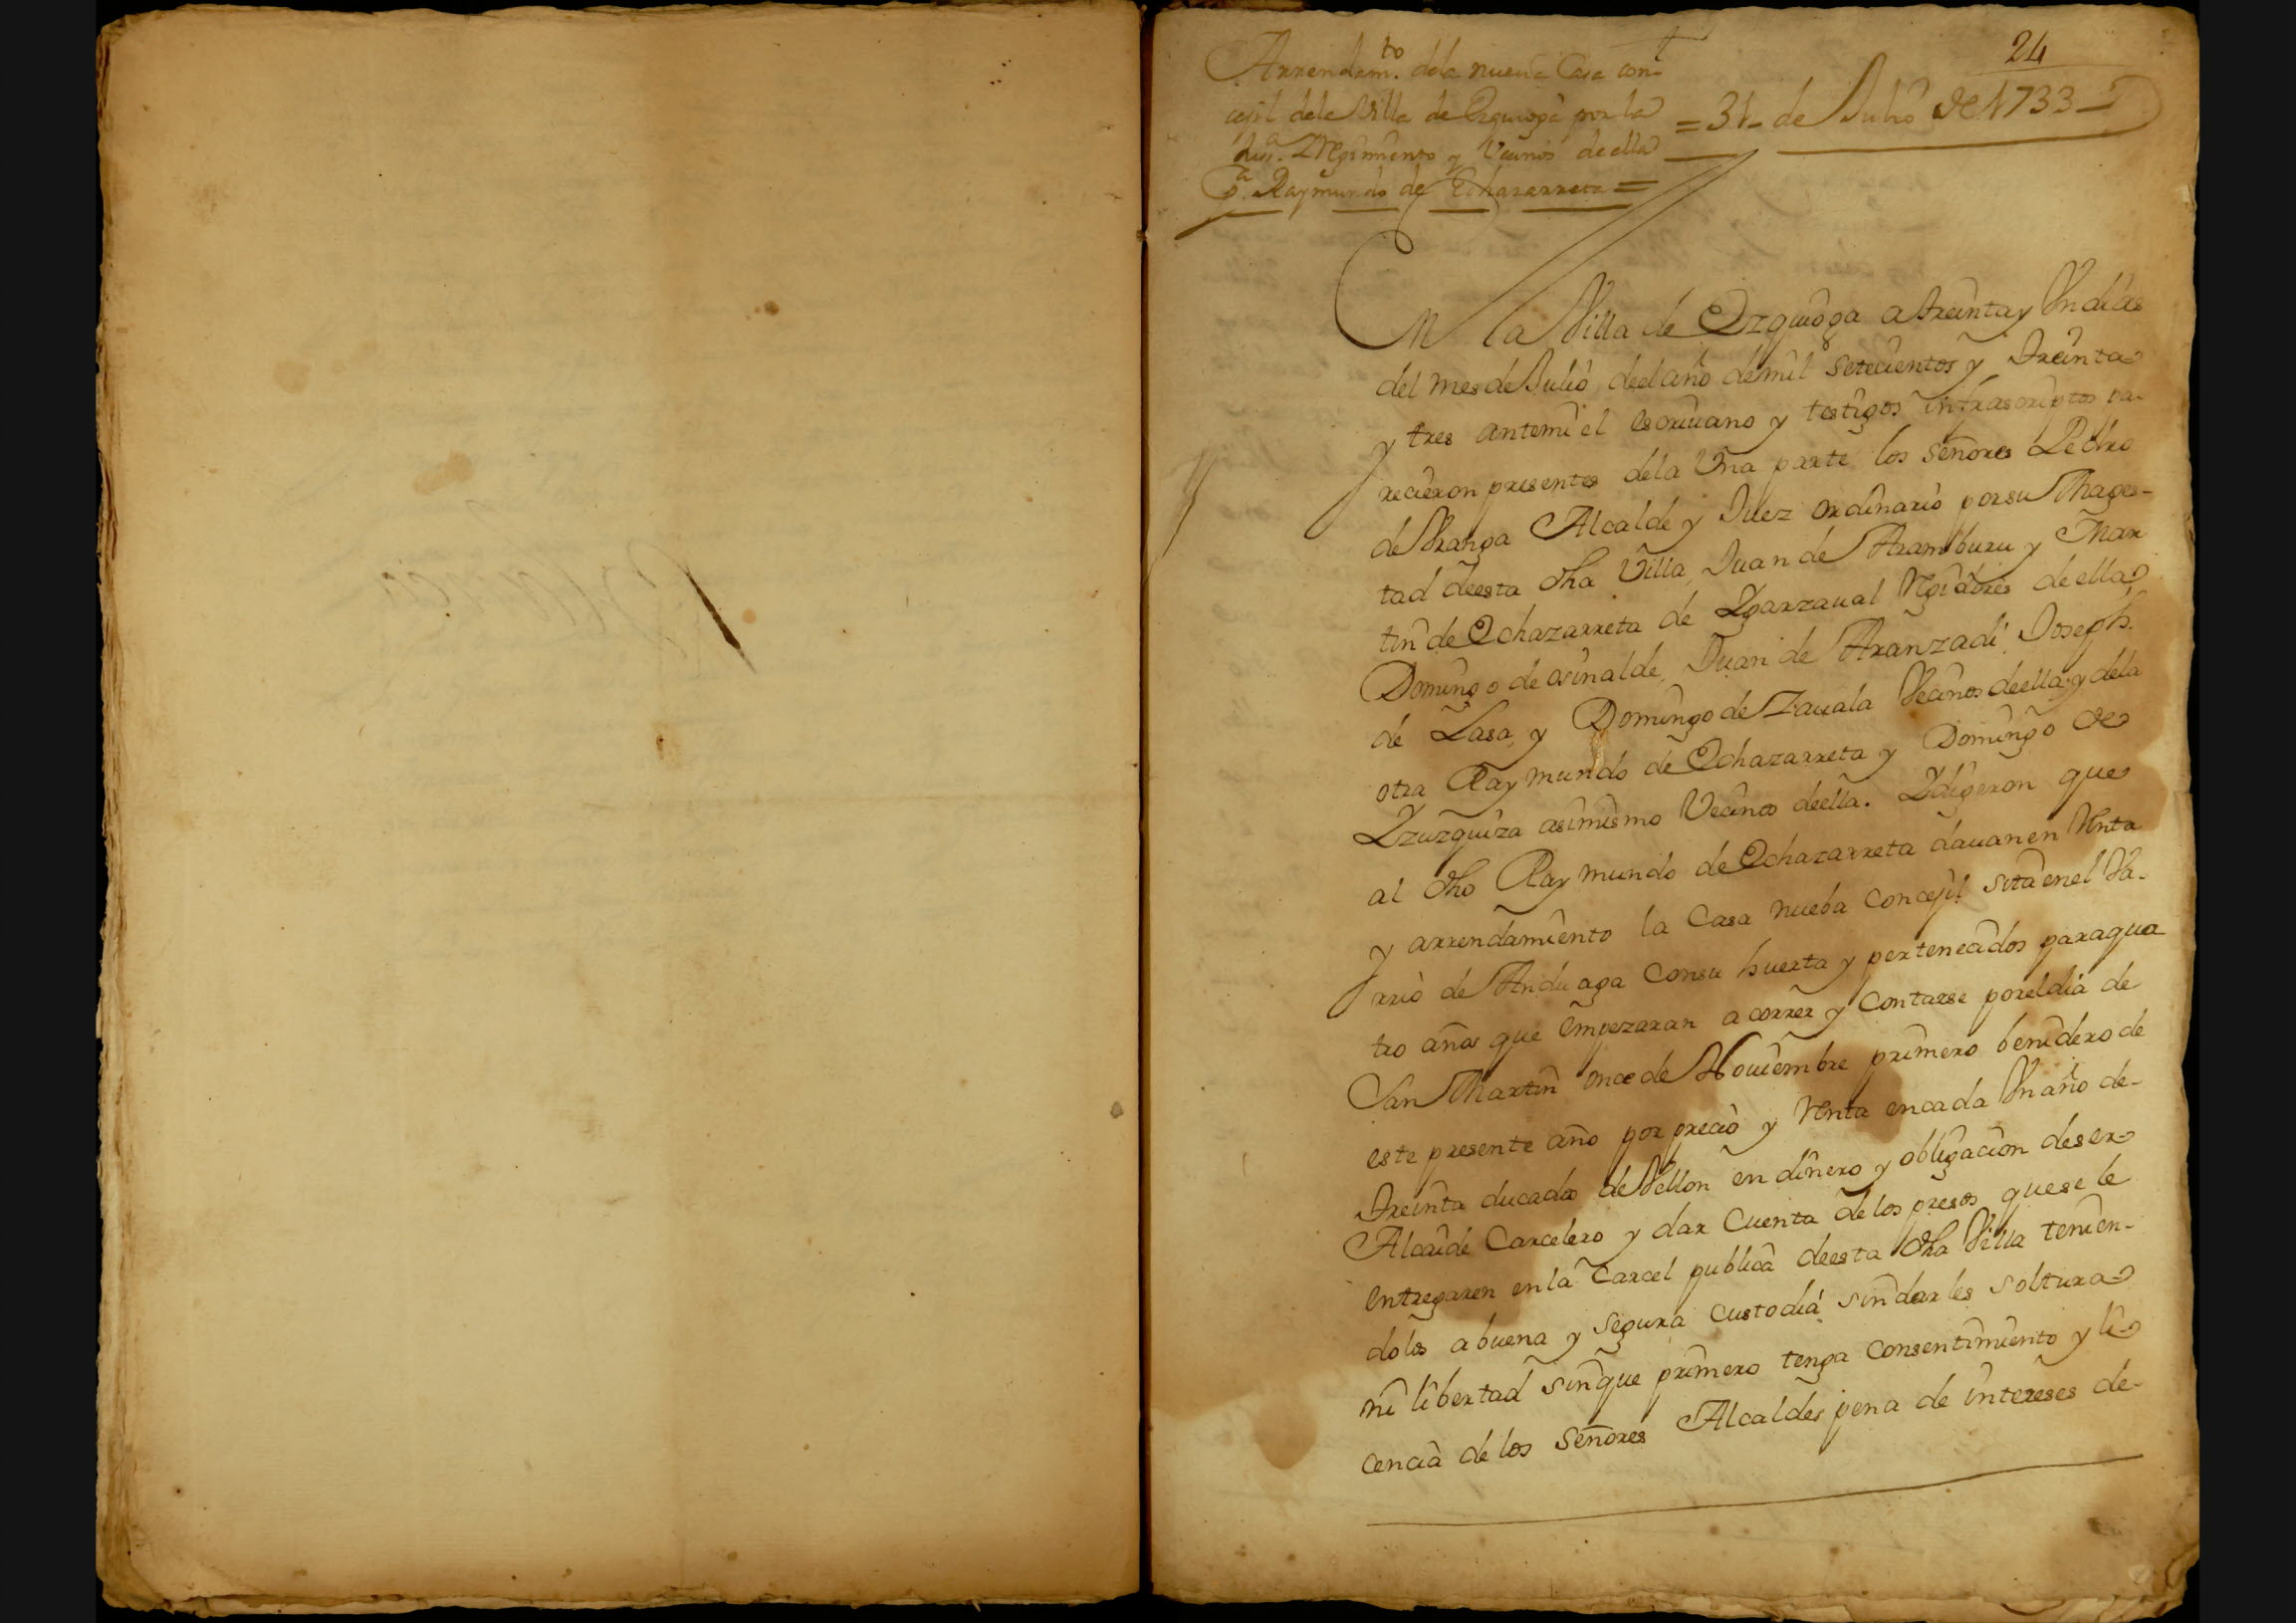 24
Arrendam.to dela nueua Casa con-
cejil dela Villa de Ezquioga por la
Jus.a Regimiento y Vecinos de ella
p.a Raymundo de Echazarreta =
= 31 - de Julio de 1733 -
En la Villa de Ezquioga a treinta y Un dias
del mes de Julio deel año de mil setecientos y Treinta
y tres antemi el escriuano y testigos infrascriptos pa-
recieron presentes dela Una parte los señores Pedro
de Vranga Alcalde y Juez ordinario por su Mages-
tad deesta dha Villa, Juan de Aramburu y Mar
tin de Echazarreta de Ygarzaual Rejidores de ella
Domingo de Osinalde, Juan de Aranzadi, Joseph.
de Lasa, y Domingo de Zauala Vecinos deella y dela
otra Raymundo de Echazarreta y Domingo de
Yzuzquiza asimismo Vecinos deella. Ydigeron que
al dho Raymundo de Echazarreta dauan en Renta
y arrendamiento la Casa nueba concejil sita enel Va-
rrio de Anduaga consu huerta y pertenecidos paraqua
tro años que empezaran a correr y contarse poreldia de
San Martin once de Nouiembre primero benidero de
este presente año por precio y Renta encada Un año de-
Treinta ducados de Vellon en dinero y obligacion deser
Alcaide Carcelero y dar Cuenta de los presos quese le
entregaren enla Carcel publica deesta dha Villa tenien-
dolos abuena y segura custodia sindarles soltura
ni libertad sinque primero tenga consentimiento y li
cencia de los señores Alcaldes pena de intereses de-